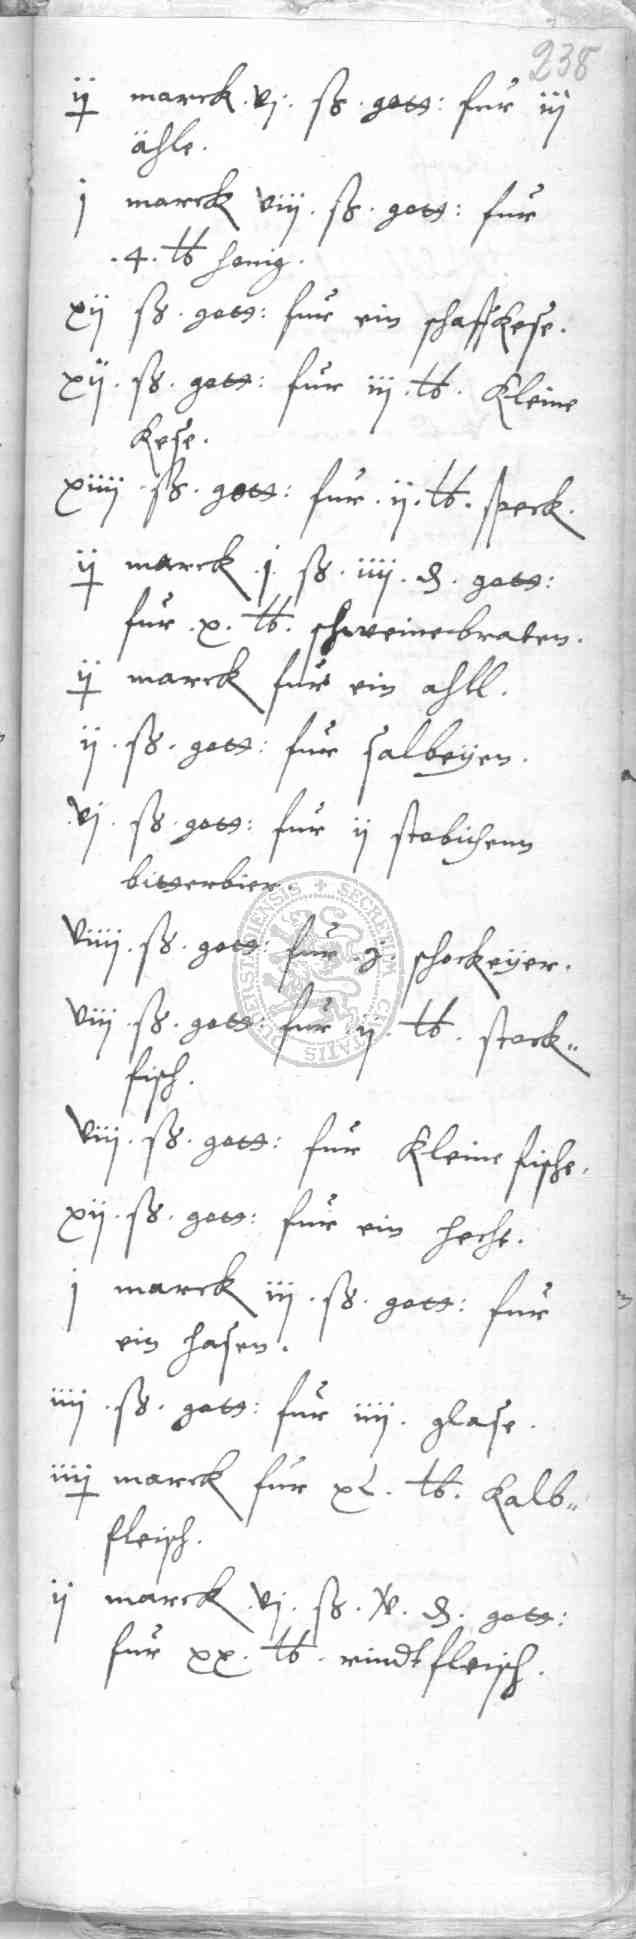 238
ij marck. vj. ß. gott: fur iij
ähle.
j marck viij. ß. gott: fur
.4. ℔ honig.
xij ß. gott: fur ein schaffkese.
xij. ß. gott: fur iij. ℔. Kleine
kese.
xiiij. ß. gott: fur. ij. ℔. speck.
ij marck .j. ß. iiij. ₰. gott:
fur .x. ℔. schweinebraten.
ij marck fur ein ahll.
ij. ß. gott: fur salbeÿen.
vj. ß. gott: fur ij stobichenn
bitterbier.
viiij. ß. gott: fur .j. schockeÿer.
viij. ß. gott: fur ij. ℔. stock„
fisch.
viij. ß. gott: fur Kleine fische.
xij. ß. gott: fur ein hecht.
j marck iij. ß. gott: fur
ein hasen.
iiij. ß. gott: fur iiij. glase.
iiij marck fur xl. ℔. Kalb„
fleisch.
ij marck. vj. ß. ₰. gott:
fur xx. ℔. rindtfleisch.
SECRETUM CIVITATIS